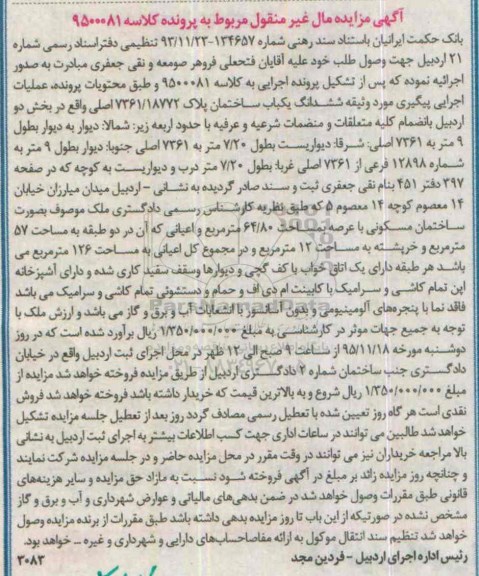 آگهی مزایده مال غیر منقول مربوط به پرونده کلاسه ۹۵۰۰۰۸۱
بانک حکمت ایرانیان باستناد سند رهنی شماره ۱۳۴۶۵۷-۹۳/۱۱/۲۳ تنظیمی دفتراسناد رسمی شماره
۲۱ اردبیل جهت وصول طلب خود علیه آقایان فتحعلی فروهر صومعه و نقی جعفری مبادرت به صدور
اجرائیه نموده که پس از تشکیل پرونده اجرایی به کلاسه ۹۵۰۰۰۸۱ و طبق محتویات پرونده، عملیات
اجرایی پیگیری مورد وثیقه ششدانگ یکباب ساختمان پلاک ۷۳۶۱/۱۸۷۷۲ اصلی واقع در بخش دو
اردبیل بانضمام کلیه متعلقات و منضمات شرعیه و عرفیه با حدود اربعه زیر: شمالا: دیوار به دیوار بطول
۹ متر به ۷۳۶۱ اصلی: شرقا: دیواریست بطول ۷/۲۰ متر به ۷۳۶۱ اصلی جنوبا: دیوار بطول ۹ متر به
شماره ۱۲۸۹۸ فرعی از ۷۳۶۱ اصلی غربا: بطول ۷/۲۰ متر درب و دیواریست به کوچه که در صفحه
۳۹۷ دفتر ۴۵۱ بنام نقی جعفری ثبت و سند صادر گردیده به نشانی - اردبیل میدان مبارزان خیابان
۱۴ معصوم کوچه ۱۴ معصوم ۵ که طبق نظریه کارشناس رسمی دادگستری ملک موصوف بصورت
ساختمان مسکونی با عرصه بمساحت ۶۴/۸۰ مترمربع و اعیانی که آن در دو طبقه به مساحت ۵۷
مترمربع و خرپشته به مساحت ۱۲ مترمربع و در مجموع کل اعیانی به مساحت ۱۲۶ مترمربع می
باشد هر طبقه دارای یک اتاق خواب با کف گچی و دیوارها وسقف سفید کاری شده و دارای آشپزخانه
اپن تمام کاشی و سرامیک با کابینت ام دی اف و حمام و دستشوئی تمام کاشی و سرامیک می باشد
فاقد نما با پنجره‌های آلومینیومی و بدون آسانسور با انشعابات آب و برق و گاز می باشد و ارزش ملک با
توجه به جمیع جهات موثر در کارشناسی به مبلغ ۱/۳۵۰/۰۰۰/۰۰۰ ریال برآورد شده است که در روز
دوشنبه مورخه ۹۵/۱۱/۱۸ از ساعت ۹ صبح الی ۱۲ ظهر در محل اجرای ثبت اردبیل واقع در خیابان
دادگستری جنب ساختمان شماره ۲ دادگستری اردبیل از طریق مزایده فروخته خواهد شد مزایده از
مبلغ ۱/۳۵۰/۰۰۰/۰۰۰ ریال شروع و به بالاترین قیمت که خریدار داشته باشد فروخته خواهد شد فروش
نقدی است هر گاه روز تعیین شده با تعطیل رسمی مصادف گردد روز بعد از تعطیل جلسه مزایده تشکیل
خواهد شد طالبین می توانند در ساعات اداری جهت کسب اطلاعات بیشتر به اجرای ثبت اردبیل به نشانی
بالا مراجعه خریداران نیز می توانند در وقت مقرر در محل مزایده حاضر و در جلسه مزایده شرکت نمایند
و چنانچه روز مزایده زائد بر مبلغ در آگهی فروخته شود نسبت به مازاد حق مزایده و سایر هزینه‌های
قانونی طبق مقررات وصول خواهد شد در ضمن بدهی‌های مالیاتی و عوارض شهرداری و آب و برق و گاز
مشخص نشده در صورتیکه از این باب تا روز مزایده بدهی داشته باشد طبق مقررات از برنده مزایده وصول
خواهد شد تنظیم سند انتقال موکول به ارائه مفاصاحساب‌های دارایی و شهرداری و غیره ... خواهد بود.
رئیس اداره اجرای اردبیل - فردین مجد
۳۰۸۳